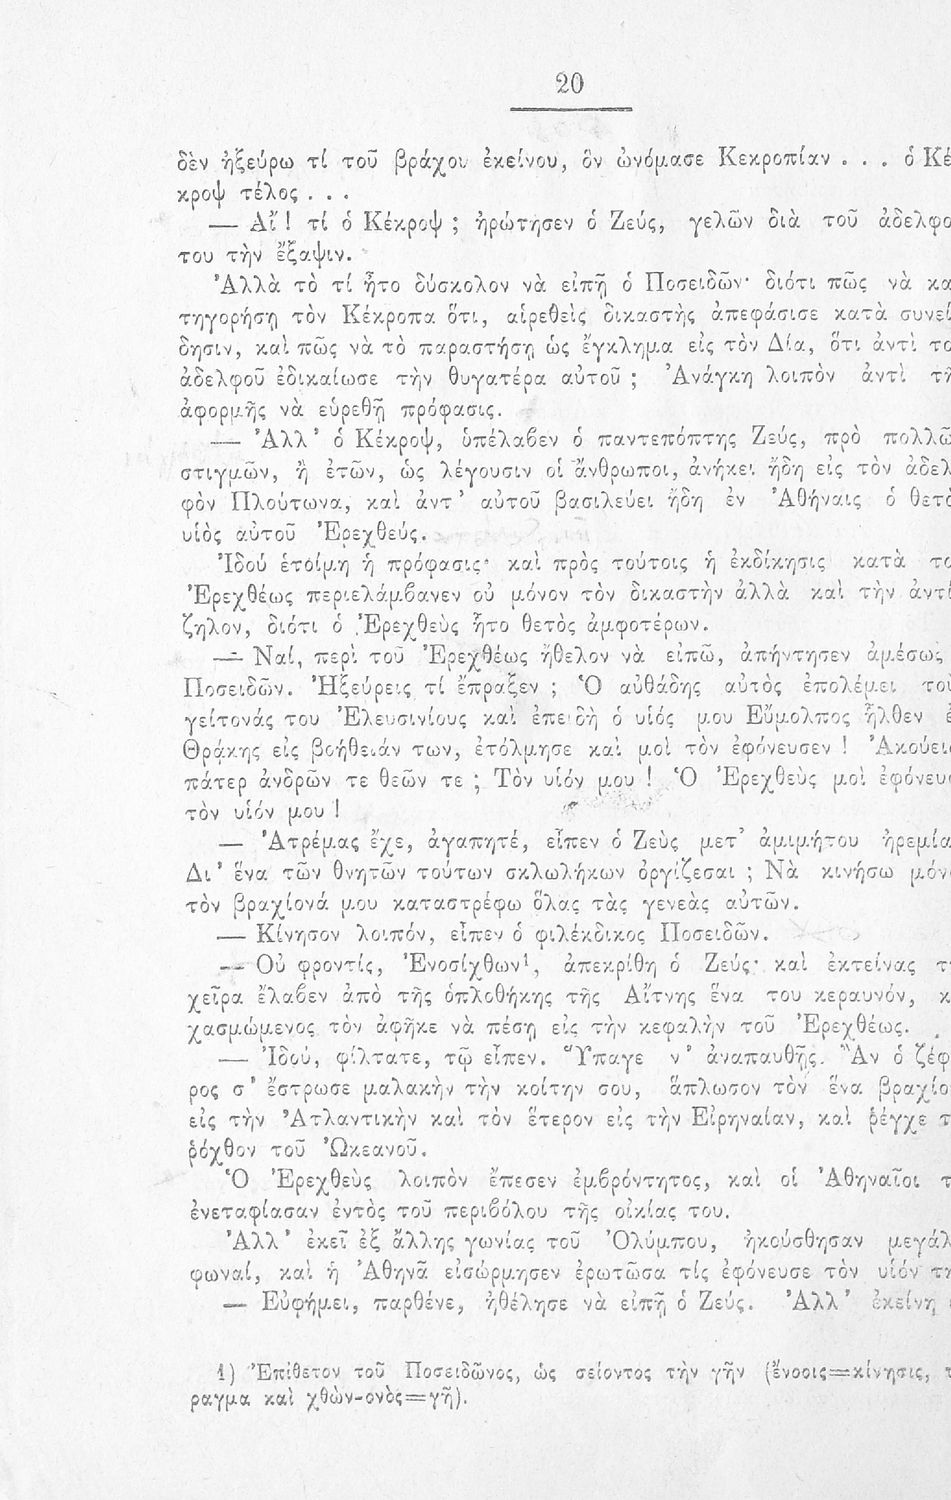 20
δὲν ἠξεύρω τί τοῦ βράχου ἐκείνου, ὃν ὠνόμασε Κεκροπίαν . . . ὁ Κέ
κροψ τέλος . . .
— Αἴ ! τί ὁ Κέκροψ ; ἠρώτησεν ὁ Ζεύς, γελῶν διὰ τοῦ ἀδελφο
του τὴν ἔξαψιν.
Ἀλλὰ τὸ τί ἦτο δύσκολον νὰ εἰπῇ ὁ Ποσειδῶν· διότι πῶς νὰ κα
τηγορήσῃ τὸν Κέκροπα ὅτι, αἱρεθεὶς δικαστὴς ἀπεφάσισε κατὰ συνεί
δησιν, καὶ πῶς νὰ τὸ παραστήσῃ ὡς ἔγκλημα εἰς τὸν Δία, ὅτι ἀντὶ το
ἀδελφοῦ ἐδικαίωσε τὴν θυγατέρα αὐτοῦ ; Ἀνάγκη λοιπὸν ἀντὶ τῆ
ἀφορμῆς νὰ εὑρεθῇ πρόφασις.
— Ἀλλ' ὁ Κέκροψ, ὑπέλαβεν ὁ παντεπόπτης Ζεύς, πρὸ πολλῶ
στιγμῶν, ἢ ἐτῶν, ὡς λέγουσιν οἱ ἄνθρωποι, ἀνήκει ἤδη εἰς τὸν ἀδελ
φὸν Πλούτωνα, καὶ ἀντ' αὐτοῦ βασιλεύει ἤδη ἐν Ἀθήναις ὁ θετὸ
υἱὸς αὐτοῦ Ἐρεχθεύς.
Ἰδού ἑτοίμη ἡ πρόφασις· καὶ πρὸς τούτοις ἡ ἐκδίκησις κατὰ το
Ἐρεχθέως περιελάμβανεν οὐ μόνον τὸν δικαστὴν ἀλλὰ καὶ τὴν ἀντί
ζηλον, διότι ὁ Ἐρεχθεὺς ἦτο θετὸς ἀμφοτέρων.
— Ναί, περὶ τοῦ Ἐρεχθέως ἤθελον νὰ εἰπῶ, ἀπήντησεν ἀμέσως
Ποσειδῶν. Ἠξεύρεις τί ἔπραξεν ; Ὁ αὐθάδης αὐτὸς ἐπολέμει τοὺ
γείτονάς του Ἐλευσινίους καὶ ἐπειδὴ ὁ υἱός μου Εὔμολπος ἦλθεν ἐ
Θρᾴκης εἰς βοήθειάν των, ἐτόλμησε καὶ μοὶ τὸν ἐφόνευσεν ! Ἀκούει
πάτερ ἀνδρῶν τε θεῶν τε ; Τὸν υἱόν μου ! Ὁ Ἐρεχθεὺς μοὶ ἐφόνευ
τὸν υἱόν μου !
— Ἀτρέμας ἔχε, ἀγαπητέ, εἶπεν ὁ Ζεὺς μετ' ἀμιμήτου ἠρεμία
Δι' ἕνα τῶν θνητῶν τούτων σκλωλήκων ὀργίζεσαι ; Νὰ κινήσω μόν
τὸν βραχίονά μου καταστρέφω ὅλας τὰς γενεὰς αὐτῶν.
— Κίνησον λοιπόν, εἶπεν ὁ φιλέκδικος Ποσειδῶν.
— Οὐ φροντίς, Ἐνοσίχθων¹, ἀπεκρίθη ὁ Ζεύς· καὶ ἐκτείνας τ
χεῖρα ἔλαβεν ἀπὸ τῆς ὁπλοθήκης τῆς Αἴτνης ἕνα του κεραυνόν, κ
χασμώμενος τὸν ἀφῆκε νὰ πέσῃ εἰς τὴν κεφαλὴν τοῦ Ἐρεχθέως.
— Ἰδού, φίλτατε, τῷ εἶπεν. Ὕπαγε ν' ἀναπαυθῇς. Ἂν ὁ ζέφ
ρος σ' ἔστρωσε μαλακὴν τὴν κοίτην σου, ἅπλωσον τὸν ἕνα βραχίο
εἰς τὴν Ἀτλαντικὴν καὶ τὸν ἕτερον εἰς τὴν Εἰρηναίαν, καὶ ῥέγχε τ
ῥόχθον τοῦ Ὠκεανοῦ.
Ὁ Ἐρεχθεὺς λοιπὸν ἔπεσεν ἐμβρόντητος, καὶ οἱ Ἀθηναῖοι τ
ἐνεταφίασαν ἐντὸς τοῦ περιβόλου τῆς οἰκίας του.
Ἀλλ' ἐκεῖ ἐξ ἄλλης γωνίας τοῦ Ὀλύμπου, ἠκούσθησαν μεγάλ
φωναί, καὶ ἡ Ἀθηνᾶ εἰσώρμησεν ἐρωτῶσα τίς ἐφόνευσε τὸν υἱόν τη
— Εὐφήμει, παρθένε, ἠθέλησε νὰ εἰπῇ ὁ Ζεύς. Ἀλλ' ἐκείνη
1) Ἐπίθετον τοῦ Ποσειδῶνος, ὡς σείοντος τὴν γῆν (ἔνοσις=κίνησις, τ
ραγμα καὶ χθὼν-ονὸς=γῆ).